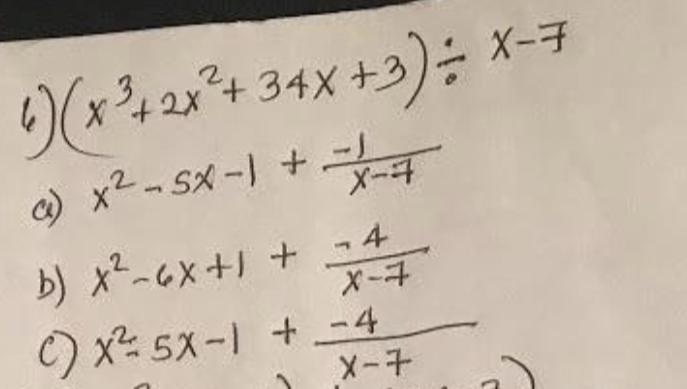 6) (x³+2x²+34x+3) ÷ x-7
a) x²-5x-1 + -1/x-7
b) x²-6x+1 + -4/x-7
c) x²-5x-1 + -4/x-7